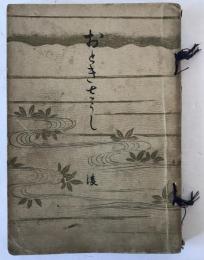 おとぎさうし
後